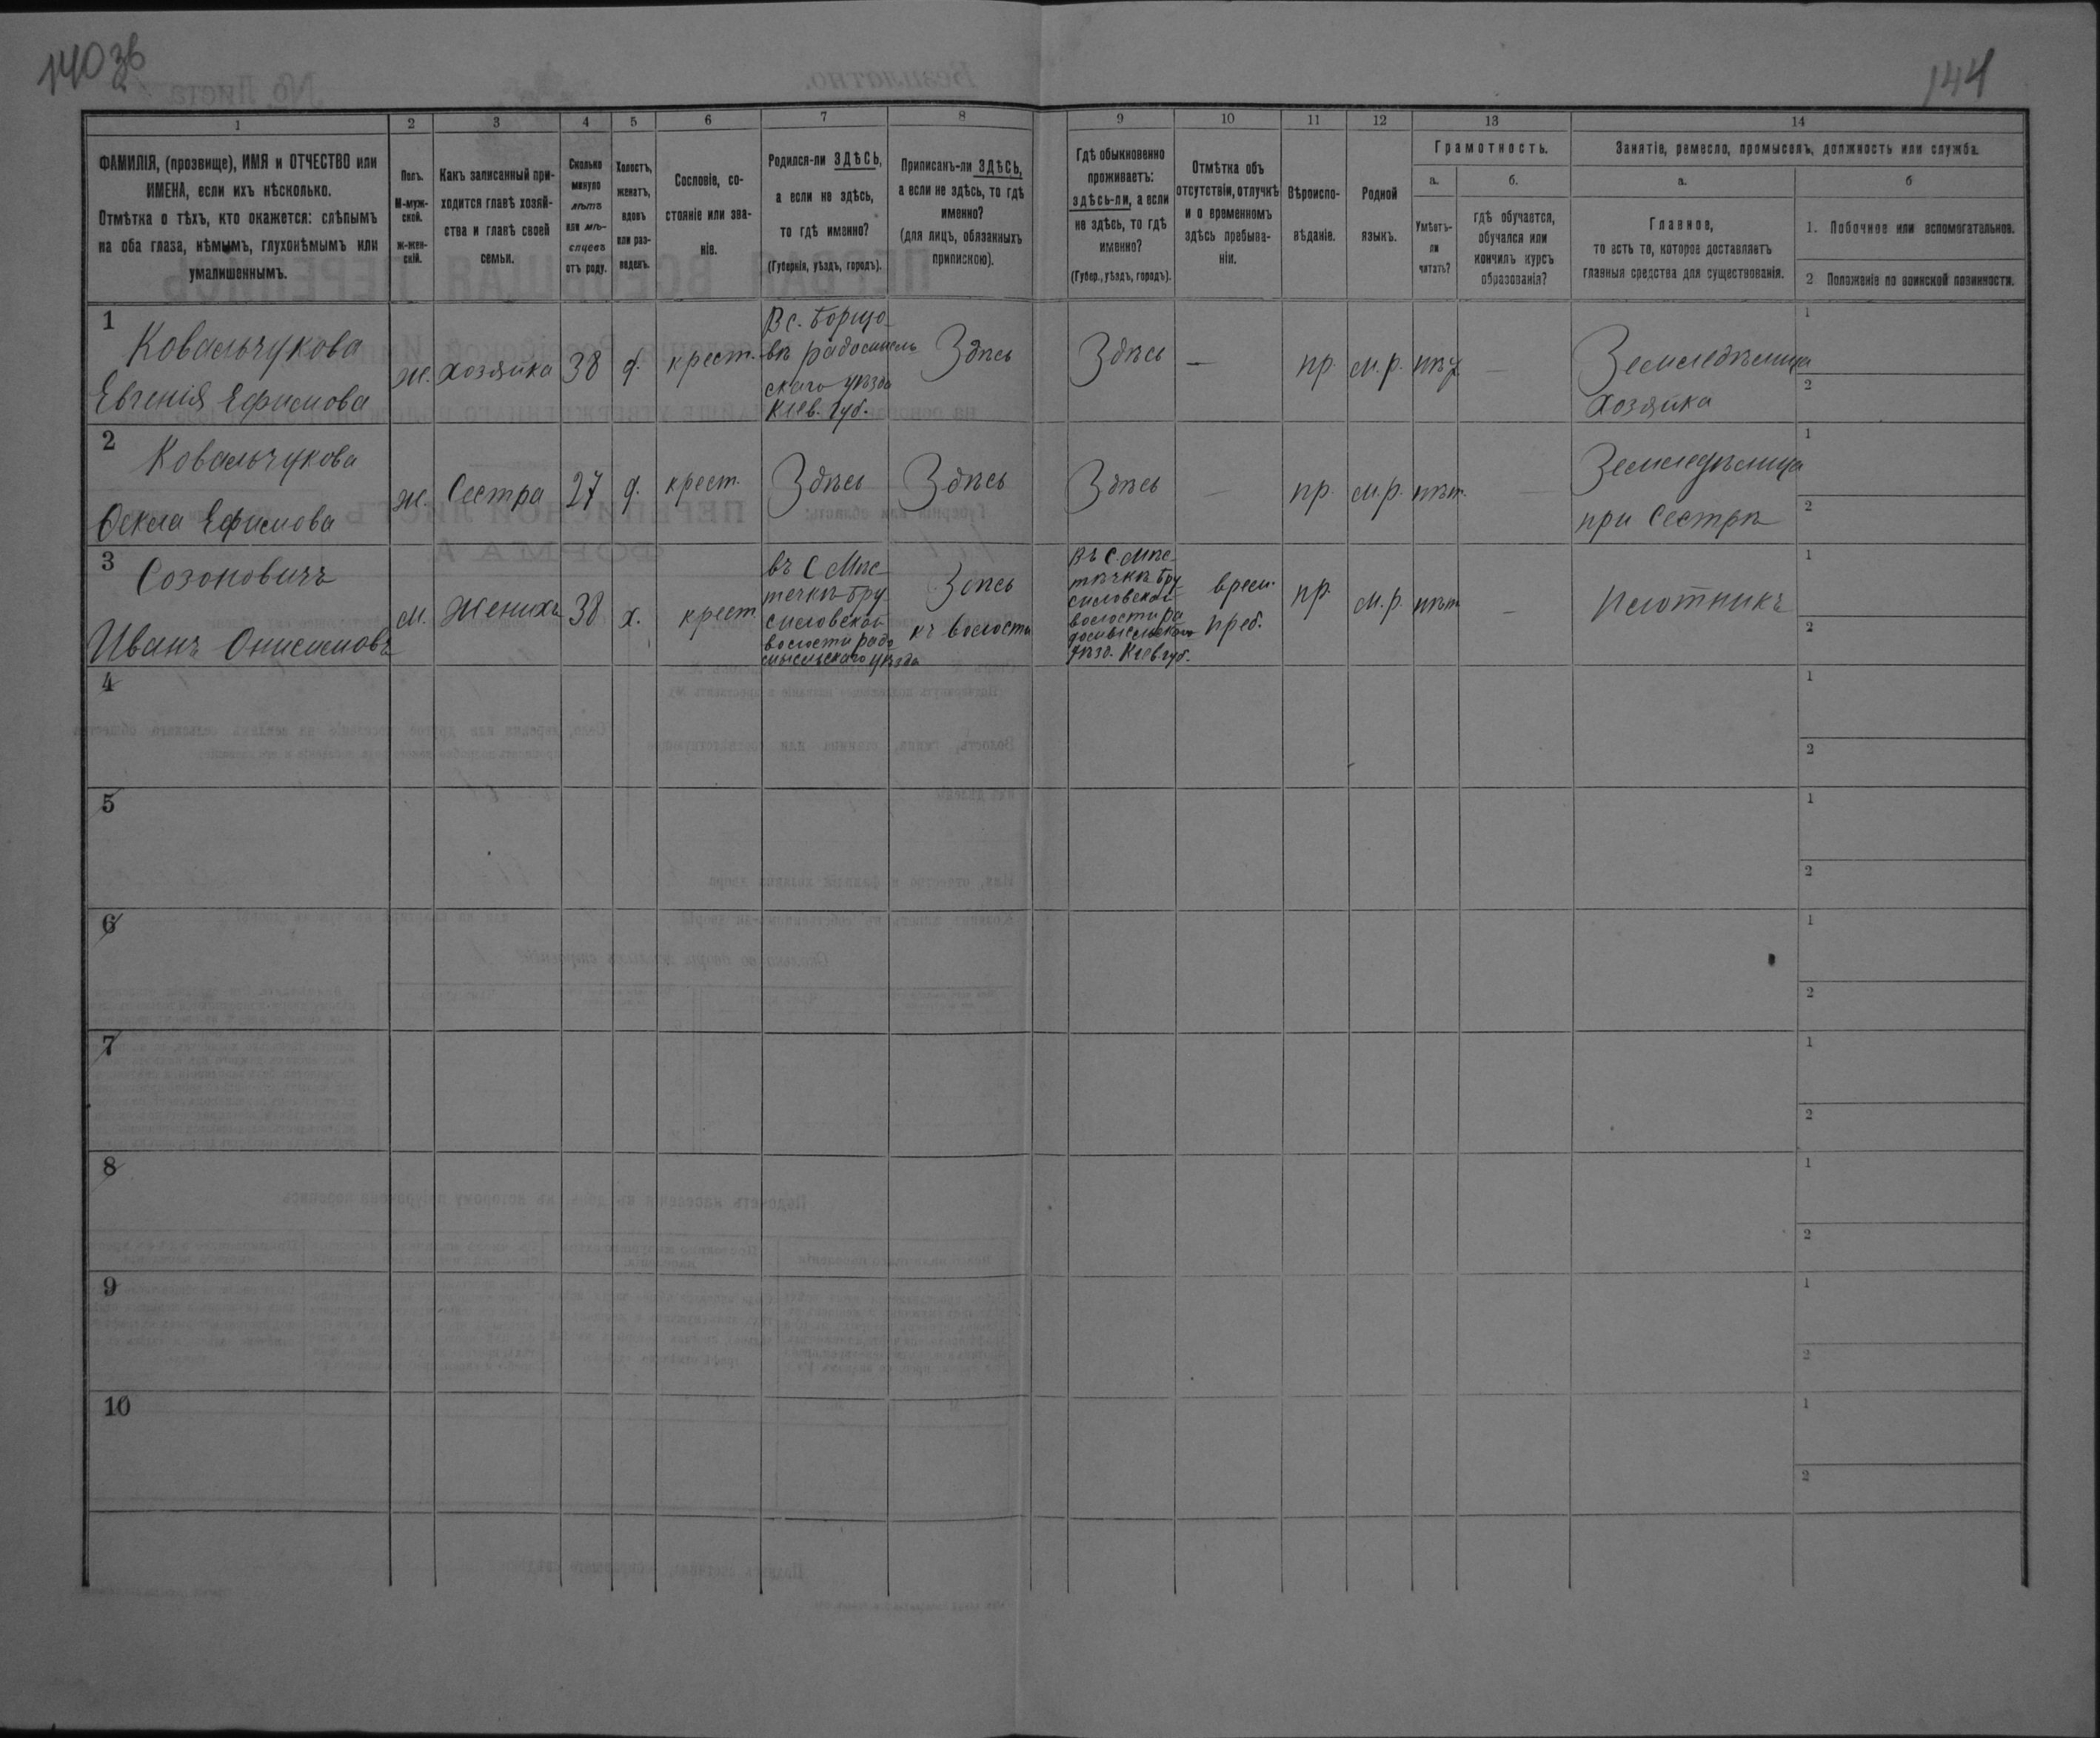 140 зв
144
1 2 3 4 5 6 7 8 9 10 11 12 13 14
ФАМИЛІЯ, (прозвище), ИМЯ и ОТЧЕСТВО или
ИМЕНА, если ихъ нѣсколько.
Отмѣтка о тѣхъ, кто окажется: слѣпымъ
на оба глаза, нѣмымъ, глухонѣмымъ или
умалишеннымъ.
Полъ.
М-муж-
ской.
ж-жен-
скій.
Какъ записанный при-
ходится главѣ хозяй-
ства и главѣ своей
семьи.
Сколько
минуло
лѣтъ
или мѣ-
сяцевъ
отъ роду.
Холостъ,
женатъ,
вдовъ
или раз-
веденъ.
Сословіе, со-
стояніе или зва-
ніе.
Родился-ли ЗДѢСЬ,
а если не здѣсь,
то гдѣ именно?
(Губернія, уѣздъ, городъ).
Приписанъ-ли ЗДѢСЬ,
а если не здѣсь, то гдѣ
именно?
(для лицъ, обязанныхъ
припискою).
Гдѣ обыкновенно
проживаетъ:
здѣсь-ли, а если
не здѣсь, то гдѣ
именно?
(Губер., уѣздъ, городъ).
Отмѣтка объ
отсутствіи, отлучкѣ
и о временномъ
здѣсь пребыва-
ніи.
Вѣроиспо-
вѣданіе.
Родной
языкъ.
Грамотность.
а.
Умѣетъ-
ли
читать?
б.
гдѣ обучается,
обучался или
кончилъ курсъ
образованія?
Занятіе, ремесло, промыселъ, должность или служба.
а.
Главное,
то есть то, которое доставляетъ
главныя средства для существованія.
б
1. Побочное или вспомогательное.
2 Положеніе по воинской повинности.
1
Ковальчукова
Евгенія Ефимова
ж.
хозяйка
38
д.
крест.
В с. Борщо-
вѣ радомысль
скаго уѣзда
Кіев. губ.
Здѣсь
Здѣсь
—
пр.
м.р.
нѣт
—
Земледѣлица
хозяйка
1
2
2
Ковальчукова
Ѳекла Ефимова
ж.
Сестра
27
д.
крест.
Здѣсь
Здѣсь
Здѣсь
—
пр.
м.р.
нѣт.
—
Земледѣлица
при Сестрѣ
1
2
3
Созоновичъ
Иванъ Онисимовъ
м.
Женихъ
38
х.
крест.
въ С Мѣс-
течкѣ Бру
силовской
волости радо
мысльскаго уѣзда
Здѣсь
къ волости
Въ С. Мѣс-
тѣчкѣ Бру
силовской
волости ра
домысльскаго
уѣзд. Кіев. губ.
врем.
преб.
пр.
м.р.
нѣт
—
Плотникъ
1
2
4
1
2
5
1
2
6
1
2
7
1
2
8
1
2
9
1
2
10
1
2